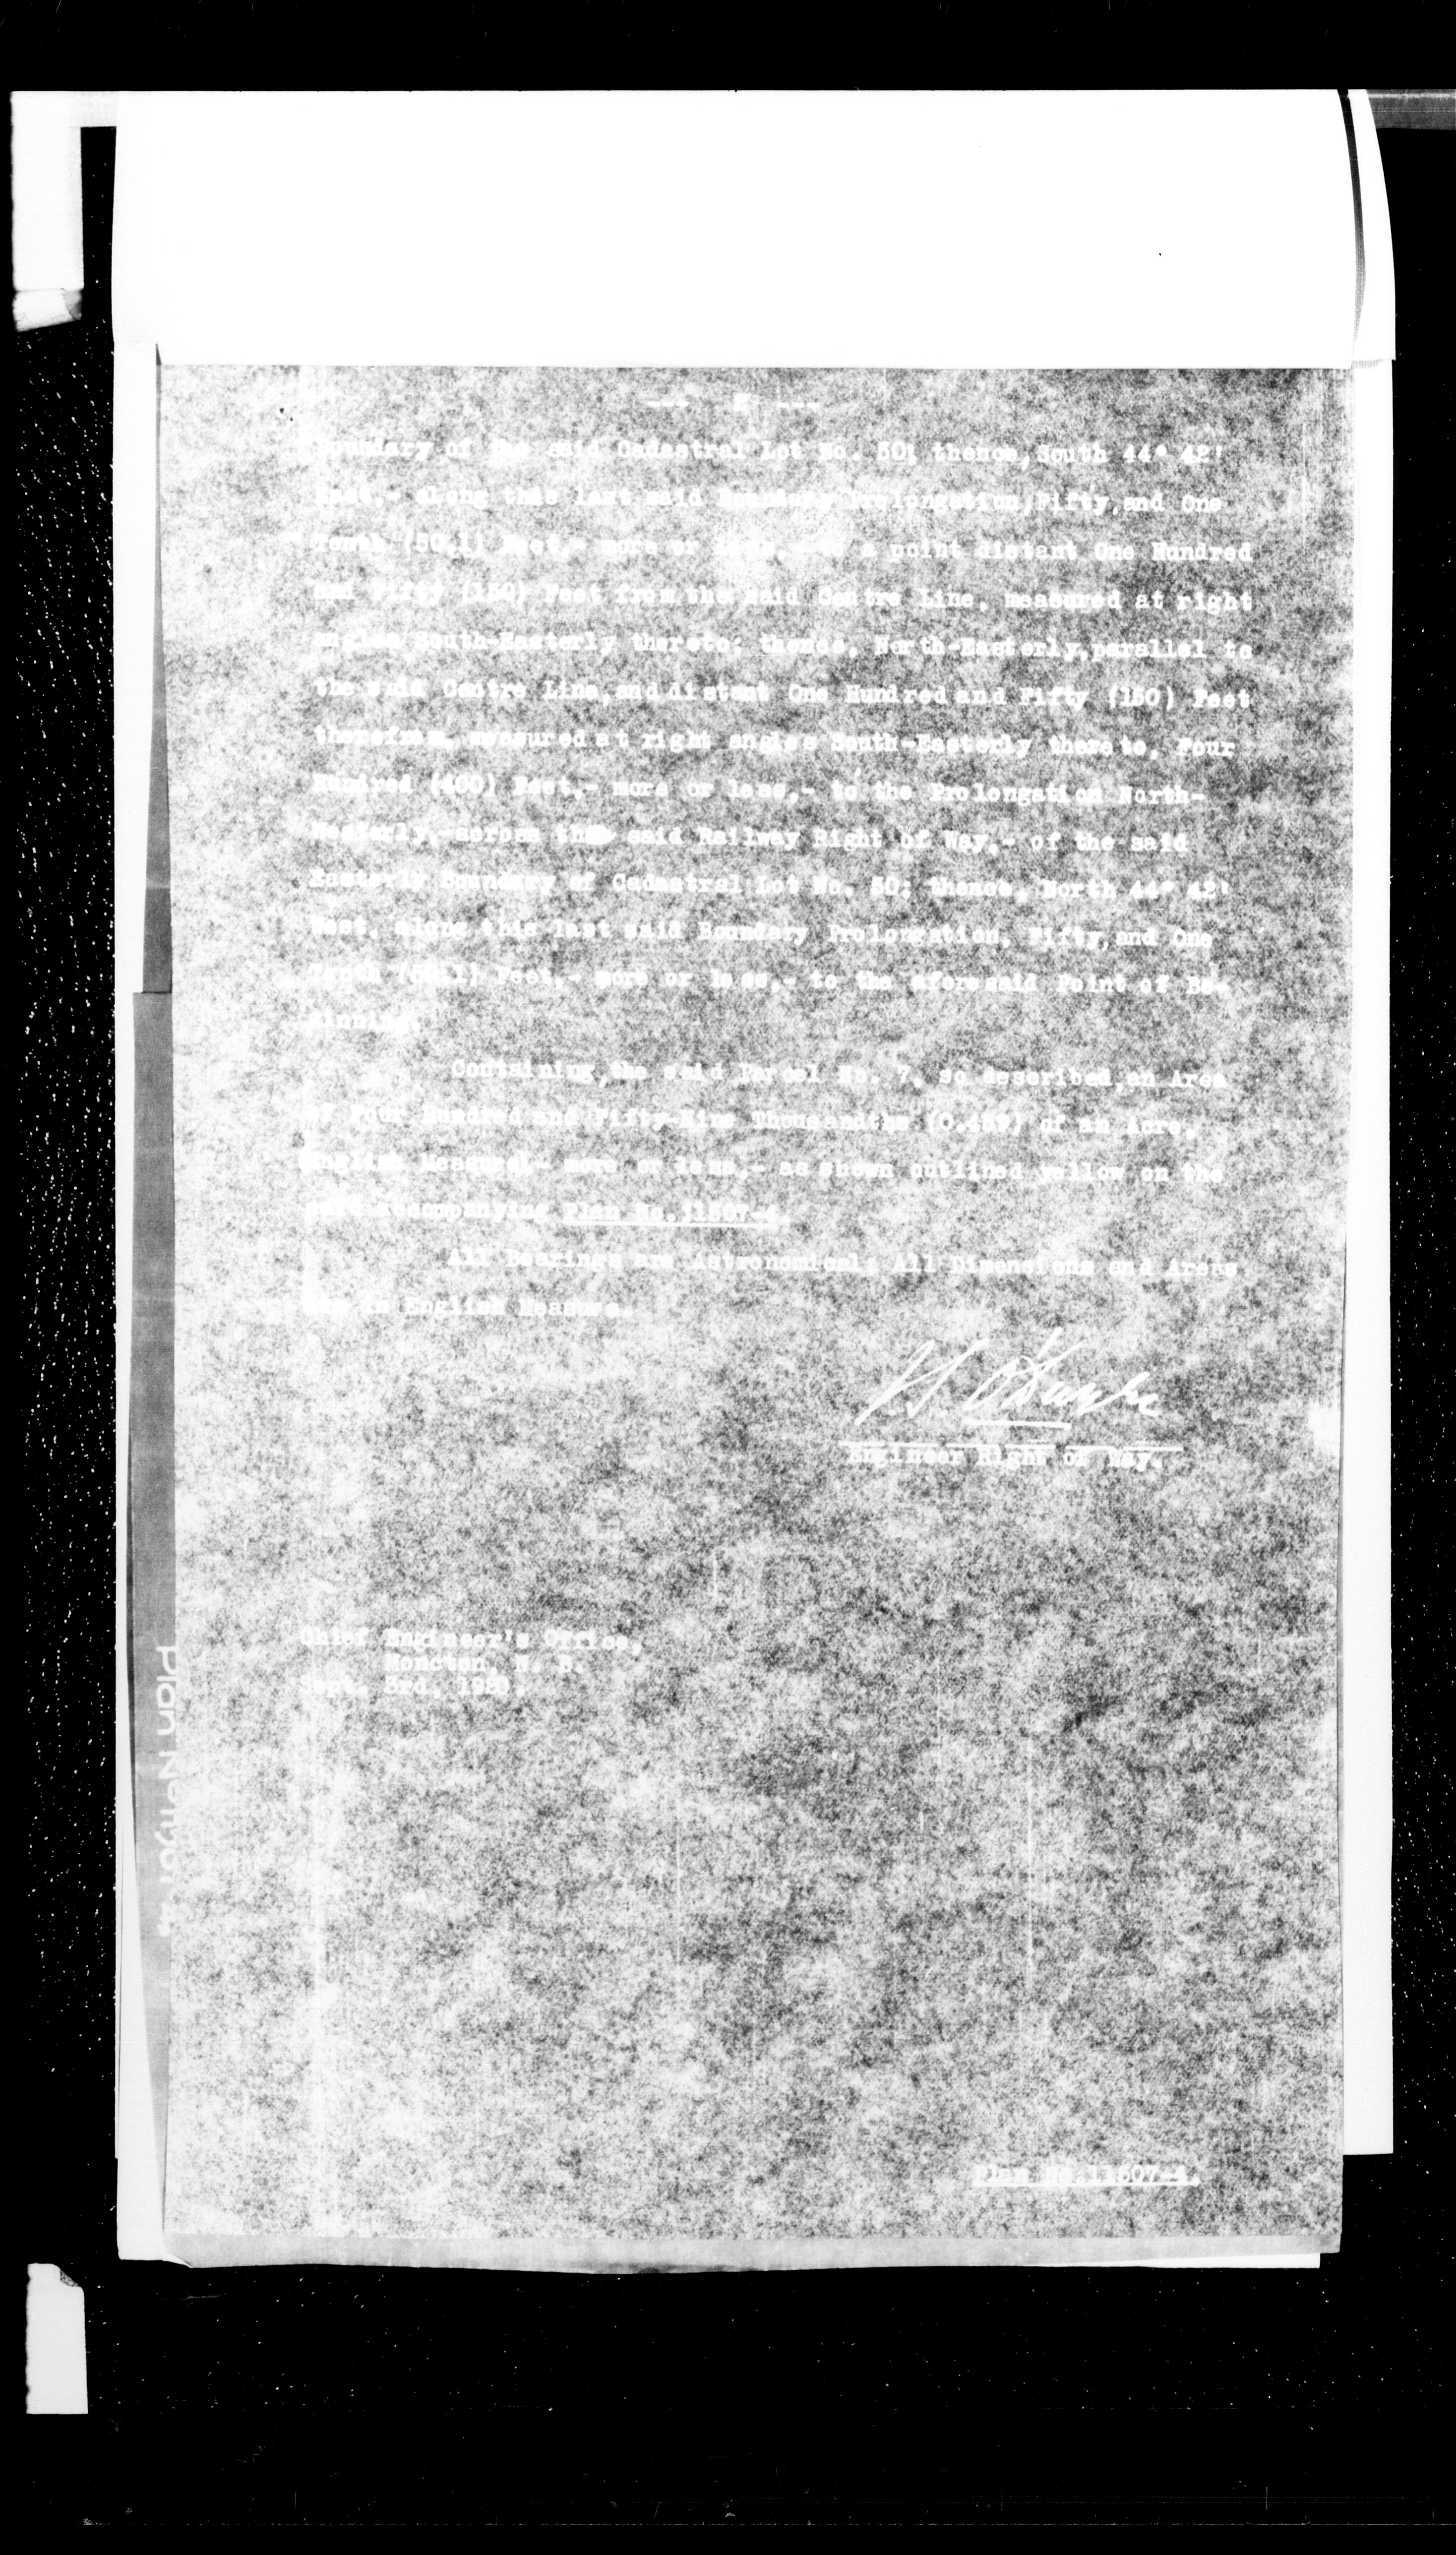 Boundary of the said Cadastral Lot No. 50; thence, South 44° 42'
East,- along this last said Boundary Prolongation, Fifty, and One
Tenth (50.1) Feet,- more or less,- to a point distant One Hundred
and Fifty (150) Feet from the said Centre Line, measured at right
angles South-Easterly thereto; thence, North-Easterly, parallel to
the said Centre Line, and distant One Hundred and Fifty (150) Feet
therefrom, measured at right angles South-Easterly thereto, Four
Hundred (400) Feet,- more or less,- to the Prolongation North-
Westerly,-across the said Railway Right of Way,- of the said
Easterly Boundary of Cadastral Lot No. 50; thence, North 44° 42'
West, along this last said Boundary Prolongation, Fifty, and One
Tenth (50.1) Feet,- more or less,- to the aforesaid Point of Be-
ginning.
Containing, the said Parcel No. 7, so described, an Area
of Four Hundred and Fifty-Nine Thousandths (0.459) of an Acre,
English Measure,- more or less,- as shown outlined yellow on the
accompanying Plan No. 11507-4.
All Bearings are Astronomical; All Dimensions and Areas
are in English Measure.
Engineer Right of Way.
Chief Engineer's Office,
Moncton, N. B.
3rd, 19
Plan No. 11507-4.